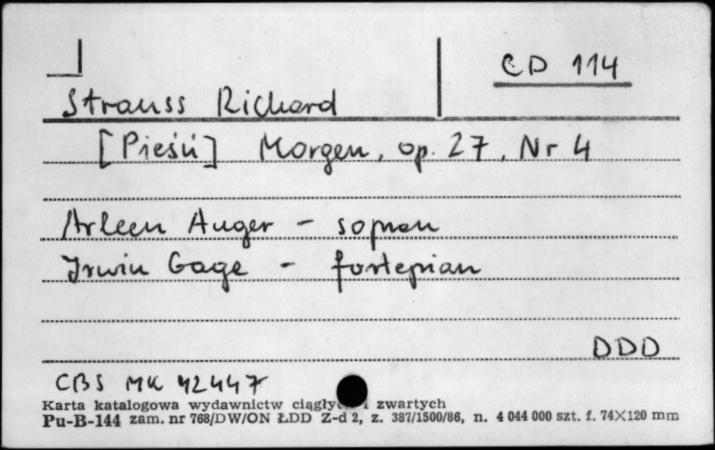 CD 114
Strauss Richard
[Pieśń] Morgen, op. 27, Nr 4
Arleen Auger - sopran
Irwin Gage - fortepian
DDD
CBS MK 42447
Karta katalogowa wydawnictw ciągłych i zwartych
Pu-B-144 zam. nr 768/DW/ON ŁDD Z-d 2, z. 387/1500/86, n. 4 044 000 szt. f. 74X120 mm